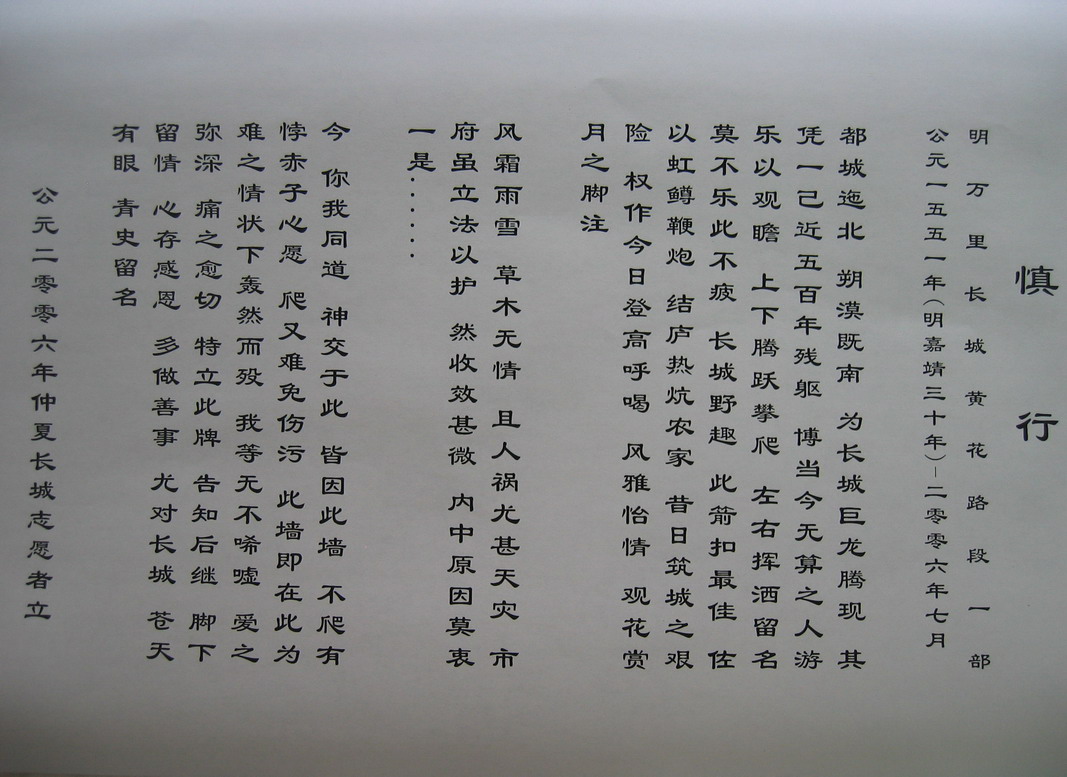 慎行
明万里长城黄花路段一部
公元一五五一年(明嘉靖三十年)–二零零六年七月
都城迤北 朔漠既南 为长城巨龙腾现 其
凭一己近五百年残躯 博当今无算之人游
乐以观瞻 上下腾跃攀爬 左右挥洒留名
莫不乐此不疲 长城野趣 此箭扣最佳 佐
以虹鳟鞭炮 结庐热炕农家 昔日筑城之艰
险 权作今日登高呼喝 风雅怡情 观花赏
月之脚注
风霜雨雪 草木无情 且人祸尤甚天灾 市
府虽立法以护 然收效甚微 内中原因莫衷
一是······
今 你我同道 神交于此 皆因此墙 不爬有
悖赤子心愿 爬又难免伤污 此墙即在此为
难之情状下轰然而殁 我等无不唏嘘 爱之
弥深 痛之愈切 特立此牌 告知后继 脚下
留情 心存感恩 多做善事 尤对长城 苍天
有眼 青史留名
公元二零零六年仲夏长城志愿者立